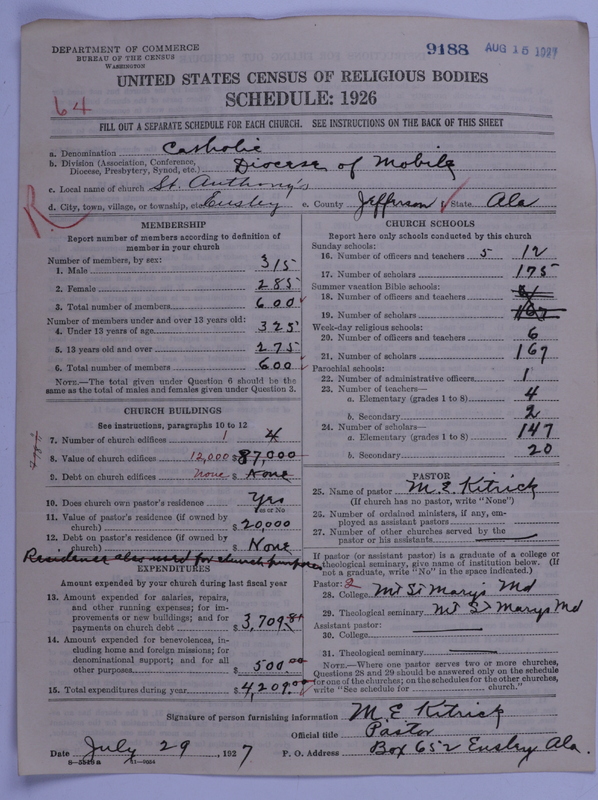 DEPARTMENT OF COMMERCE
BUREAU OF THE CENSUS
WASHINGTON
9188 AUG 15 1927
UNITED STATES CENSUS OF RELIGIOUS BODIES
SCHEDULE: 1926
64
FILL OUT A SEPARATE SCHEDULE FOR EACH CHURCH. SEE INSTRUCTIONS ON THE BACK OF THIS SHEET
a. Denomination Catholic
b. Division (Association, Conference, Diocese, Presbytery, Synod, etc.) Diocese of Mobile
c. Local name of church St. Anthony's
d. City, town, village, or township, etc. Ensley e. County Jefferson f. State Ala
R
MEMBERSHIP
Report number of members according to definition of
member in your church
Number of members, by sex:
1. Male 315
2. Female 285
3. Total number of members 600
Number of members under and over 13 years old:
4. Under 13 years of age 325
5. 13 years old and over 275
6. Total number of members 600
NOTE.—The total given under Question 6 should be the
same as the total of males and females given under Question 3.
CHURCH BUILDINGS
See instructions, paragraphs 10 to 12
7. Number of church edifices 1 4
8. Value of church edifices 12,000 $87,000
9. Debt on church edifices none $ None
10. Does church own pastor's residence? Yes
Yes or No
11. Value of pastor's residence (if owned by
church) $20,000
12. Debt on pastor's residence (if owned by
church) $ None
Residence also used for church purposes
EXPENDITURES
Amount expended by your church during last fiscal year
13. Amount expended for salaries, repairs,
and other running expenses; for im-
provements or new buildings; and for
payments on church debt $3,709.84
14. Amount expended for benevolences, in-
cluding home and foreign missions; for
denominational support; and for all
other purposes $500.00
15. Total expenditures during year $4,209.00
CHURCH SCHOOLS
Report here only schools conducted by this church
Sunday schools:
16. Number of officers and teachers 5 12
17. Number of scholars 175
Summer vacation Bible schools:
18. Number of officers and teachers
19. Number of scholars
Week-day religious schools:
20. Number of officers and teachers 6
21. Number of scholars 167
Parochial schools:
22. Number of administrative officers 1
23. Number of teachers—
a. Elementary (grades 1 to 8) 4
b. Secondary 2
24. Number of scholars—
a. Elementary (grades 1 to 8) 147
b. Secondary 20
PASTOR
25. Name of pastor M. E. Kitrick
(If church has no pastor, write "None")
26. Number of ordained ministers, if any, em-
ployed as assistant pastors
27. Number of other churches served by the
pastor or his assistants
If pastor (or assistant pastor) is a graduate of a college or
theological seminary, give name of institution below. (If
not a graduate, write "No" in the space indicated.)
Pastor: 2
28. College Mt St Marys Md
29. Theological seminary Mt St Marys Md
Assistant pastor:
30. College
31. Theological seminary
NOTE.—Where one pastor serves two or more churches,
Questions 28 and 29 should be answered only on the schedule
for one of the churches; on the schedules for the other churches,
write "See schedule for church."
Signature of person furnishing information M. E Kitrick
Official title Pastor
Date July 29, 1927 P. O. Address Box 652 Ensley Ala.
8—5518a 11—9024